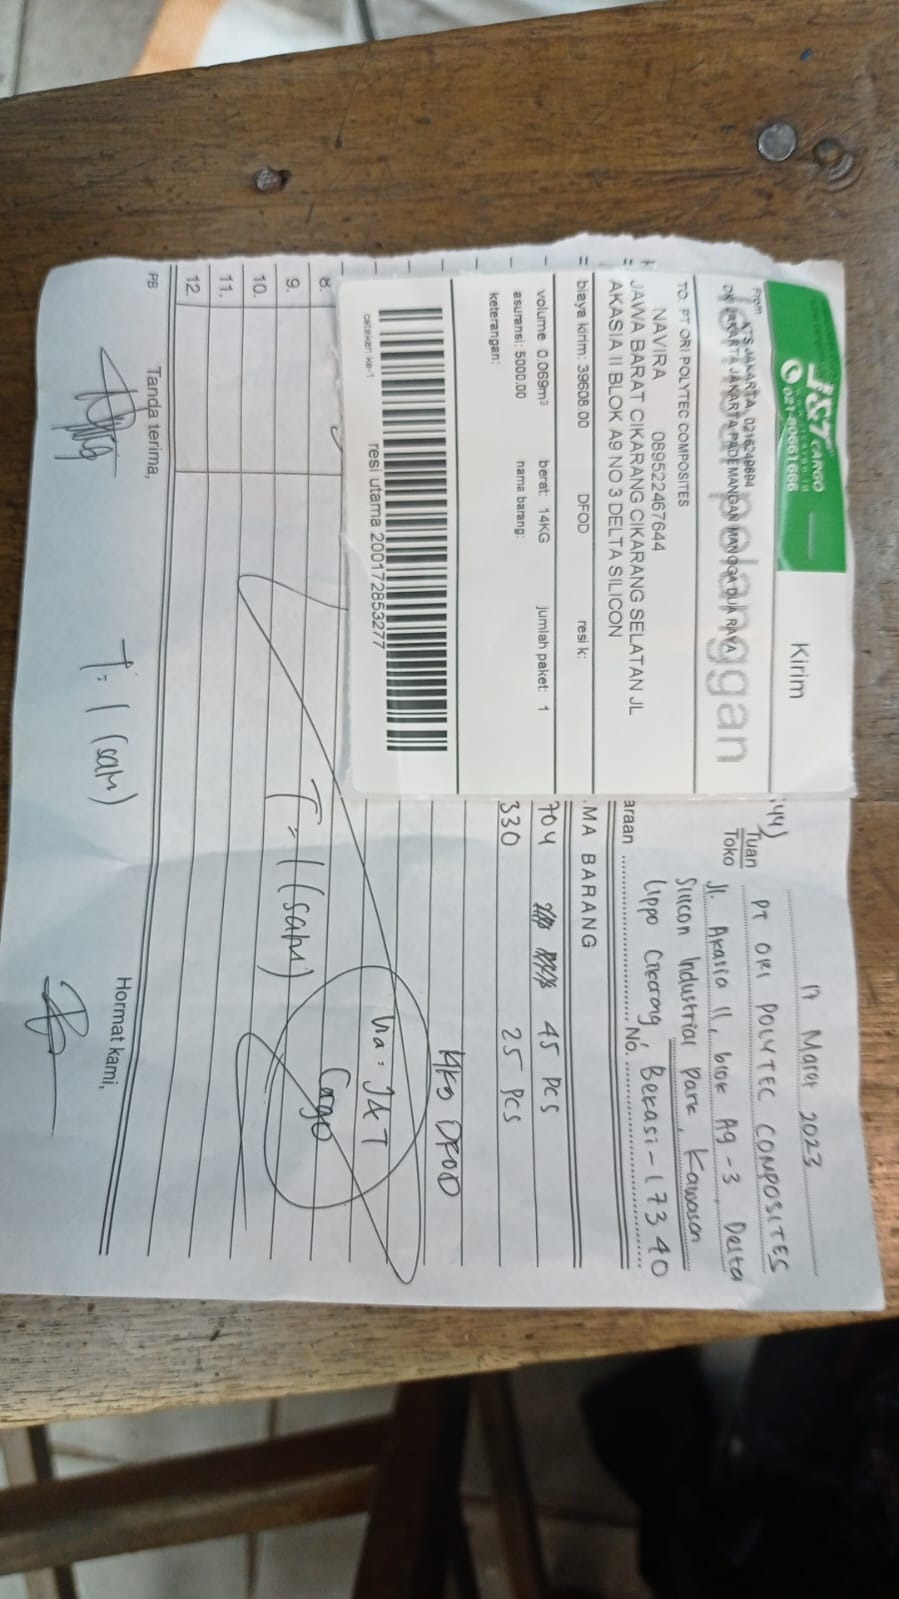 J&T CARGO
021-80661666
Kirim
pelanggan
From ATS JAKARTA, 0216249694
DKI JAKARTA JAKARTA PADEMANGAN MANGGA DUA RAYA
TO: PT ORI POLYTEC COMPOSITES
NAVIRA 089522467644
JAWA BARAT CIKARANG CIKARANG SELATAN JL
AKASIA II BLOK A9 NO 3 DELTA SILICON
biaya kirim: 39608.00 DFOD resi k:
volume 0.069m³ berat: 14KG jumlah paket: 1
asuransi: 5000.00 nama barang:
keterangan:
resi utama 200172853277
cetakan ke-1
17 Maret 2023
Tuan
Toko
PT ORI POLYTEC COMPOSITES
Jl. Akasia II, blok A9-3, Delta
Silicon Industrial Park, Kawasan
Lippo Cikarang, Bekasi - 17340
araan No.
MA BARANG
704 45 Pcs
330 25 Pcs
14KG DFOD
Via : J&T
Cargo
T = 1 (satu)
8.
9.
10.
11.
12.
PB Tanda terima, Hormat kami,
T = 1 (satu)